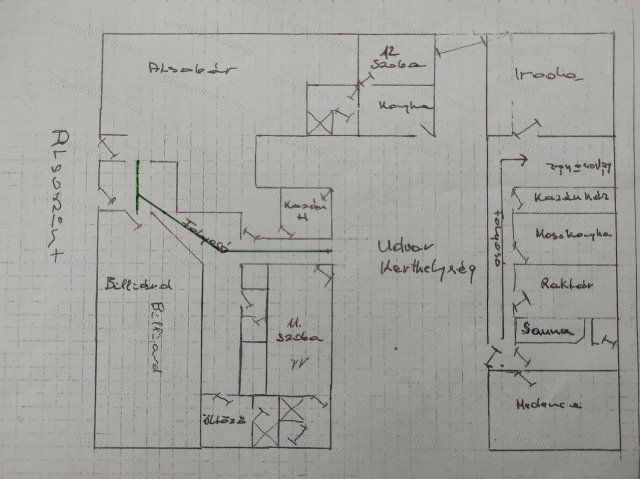 Alsobár
12
Szoba
Konyha
Iroda
Alsószint
Kazánház
Kazán
H
Folyosó
Folyosó
Mosókonyha
Udvar
Kerthelység
Billiárd
Billiárd
Raktár
11.
Szoba
Szauna
öltöző
Medence